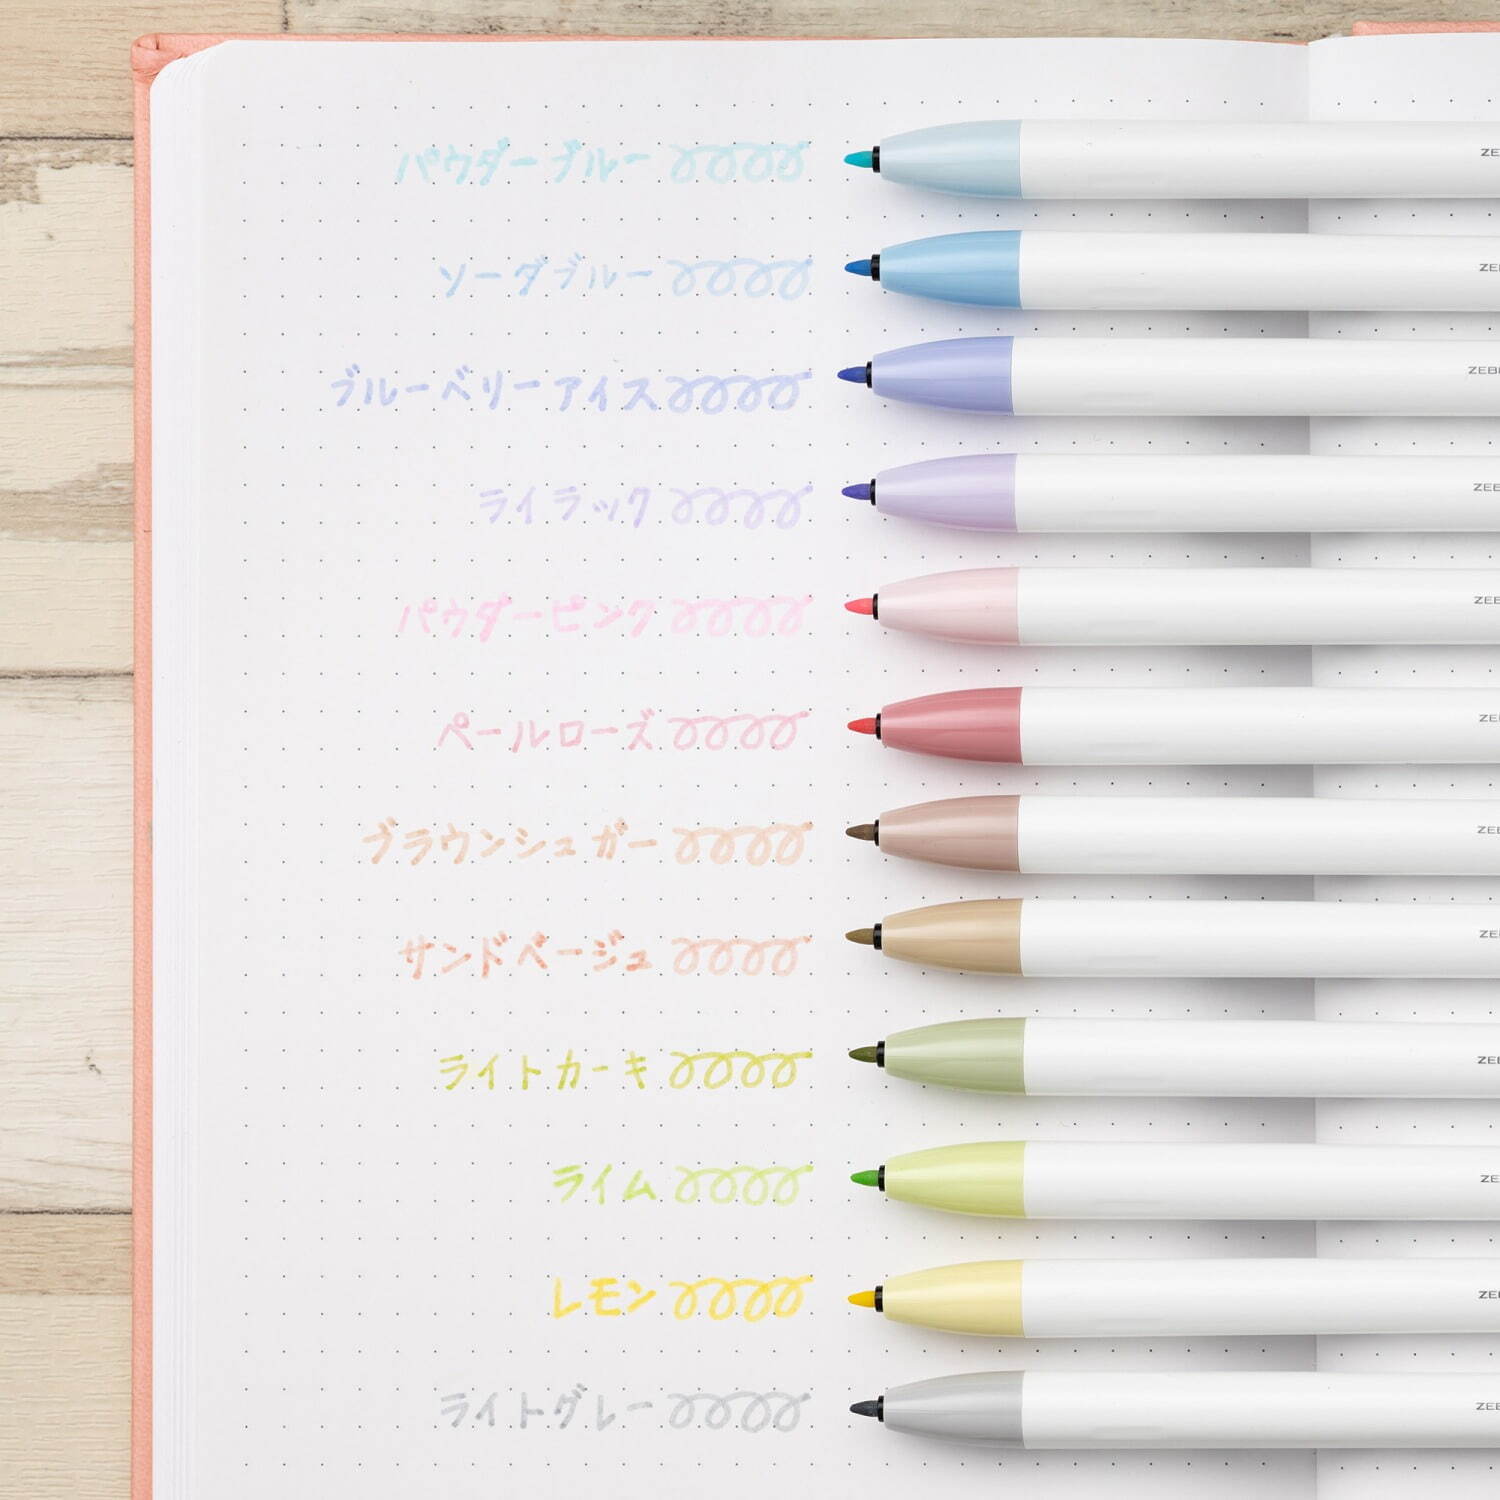 パウダーブルー ZE
ソーダブルー ZE
ブルーベリーアイス ZEB
ライラック ZEB
パウダーピンク ZEB
ペールローズ ZE
ブラウンシュガー ZE
サンドベージュ ZE
ライトカーキ ZE
ライム ZE
レモン ZE
ライトグレー ZEB